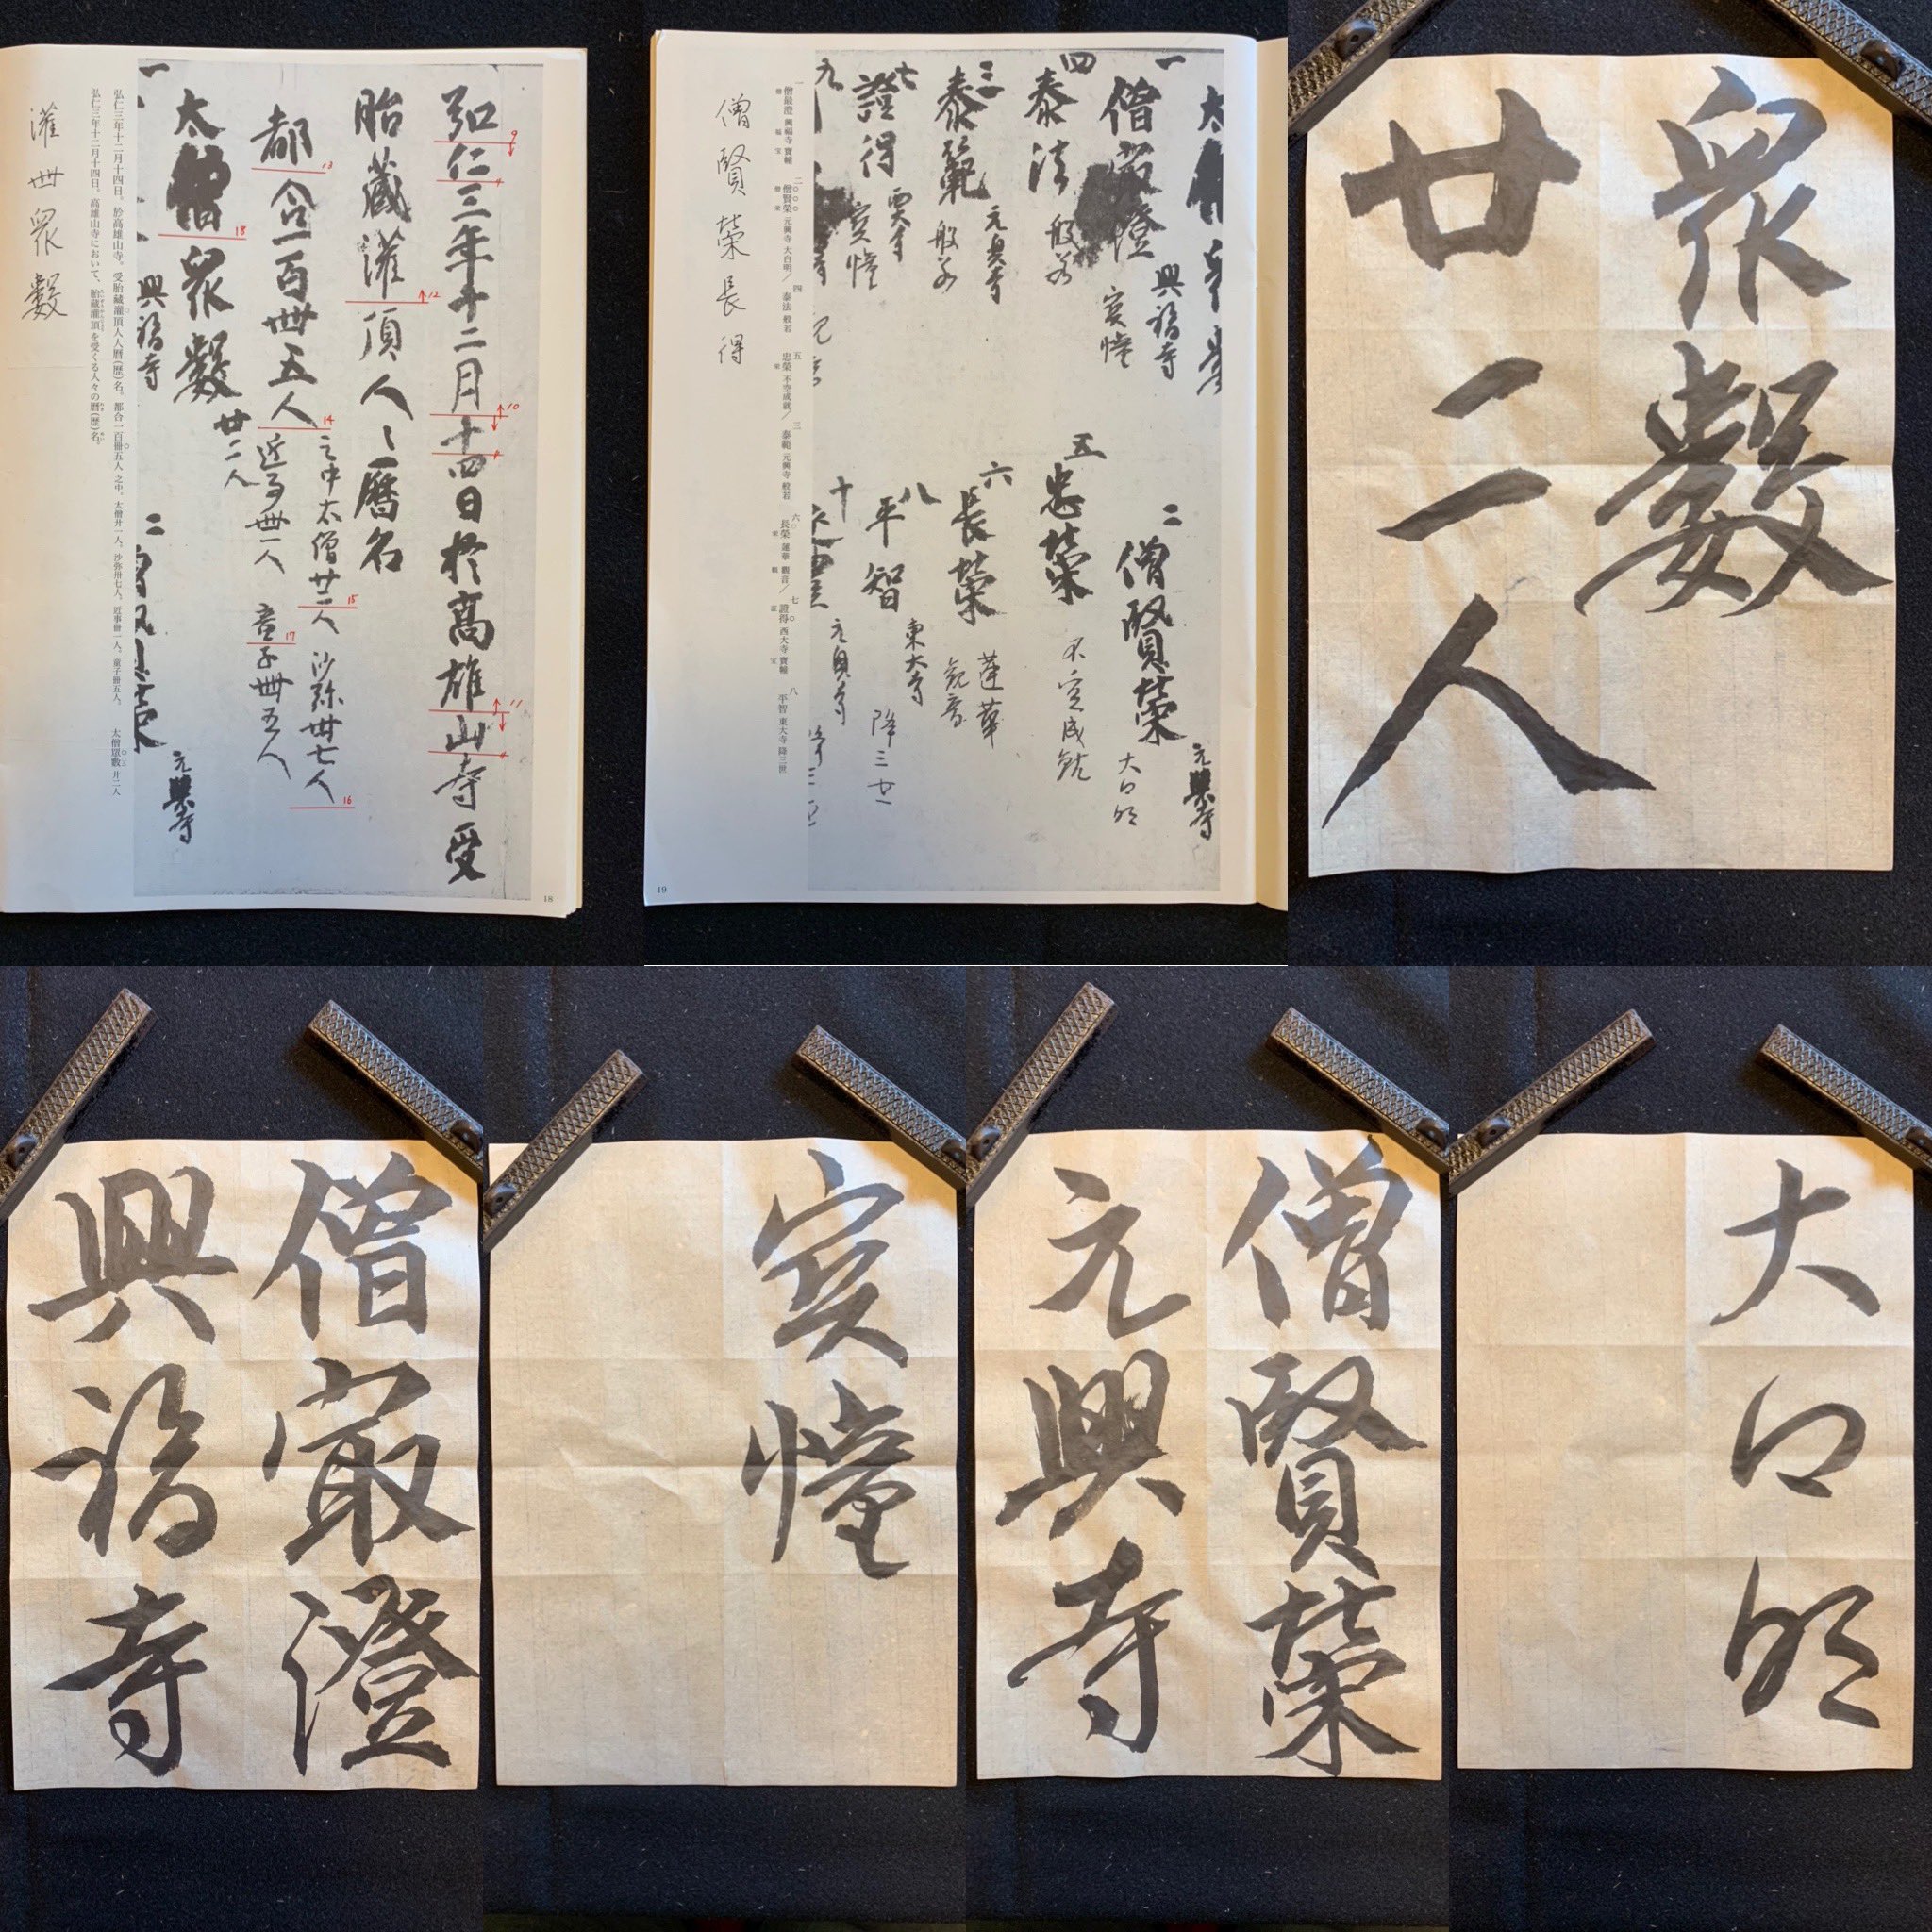 弘仁三年十二月十四日於高雄山寺受
胎藏灌頂人々曆名
都合一百卌五人
之中太僧廿二人 沙弥卌七人
近事卌一人 童子卌五人
太僧眾數 廿二人
一
興福寺
二 僧賢榮
元興寺
弘仁三年十二月十四日。於高雄山寺。受胎藏灌頂人人暦(歴)名。都合一百卌五人 之中。太僧廿二人。沙弥卌七人。近事卌一人。童子卌五人。 太僧眾數 廿二人
弘仁三年十二月十四日。高雄山寺において、胎蔵灌頂を受くる人々の暦(歴)名。
灌 卌 眾 數
18
太僧眾數
一 僧最澄 興福寺
寳幢
二 僧賢榮 元興寺
大日明
四 泰法 般若
五 忠榮 不空成就
三 泰範 元興寺
般若
六 長榮 蓮華
觀音
七 證得 西大寺
寳幢
八 平智 東大寺
降三世
九
十
元興寺
一 僧最澄 興福寺 寶幢 二 僧賢榮 元興寺 大日明/ 四 泰法 般若 五 忠榮 不空成就/ 三 泰範 元興寺 般若 六 長榮 蓮華 觀音/ 七 證得 西大寺 寶幢 八 平智 東大寺 降三世
僧 賢 榮 長 得
19
眾數
廿二人
僧最澄
興福寺
寳幢
僧賢榮
元興寺
大日明